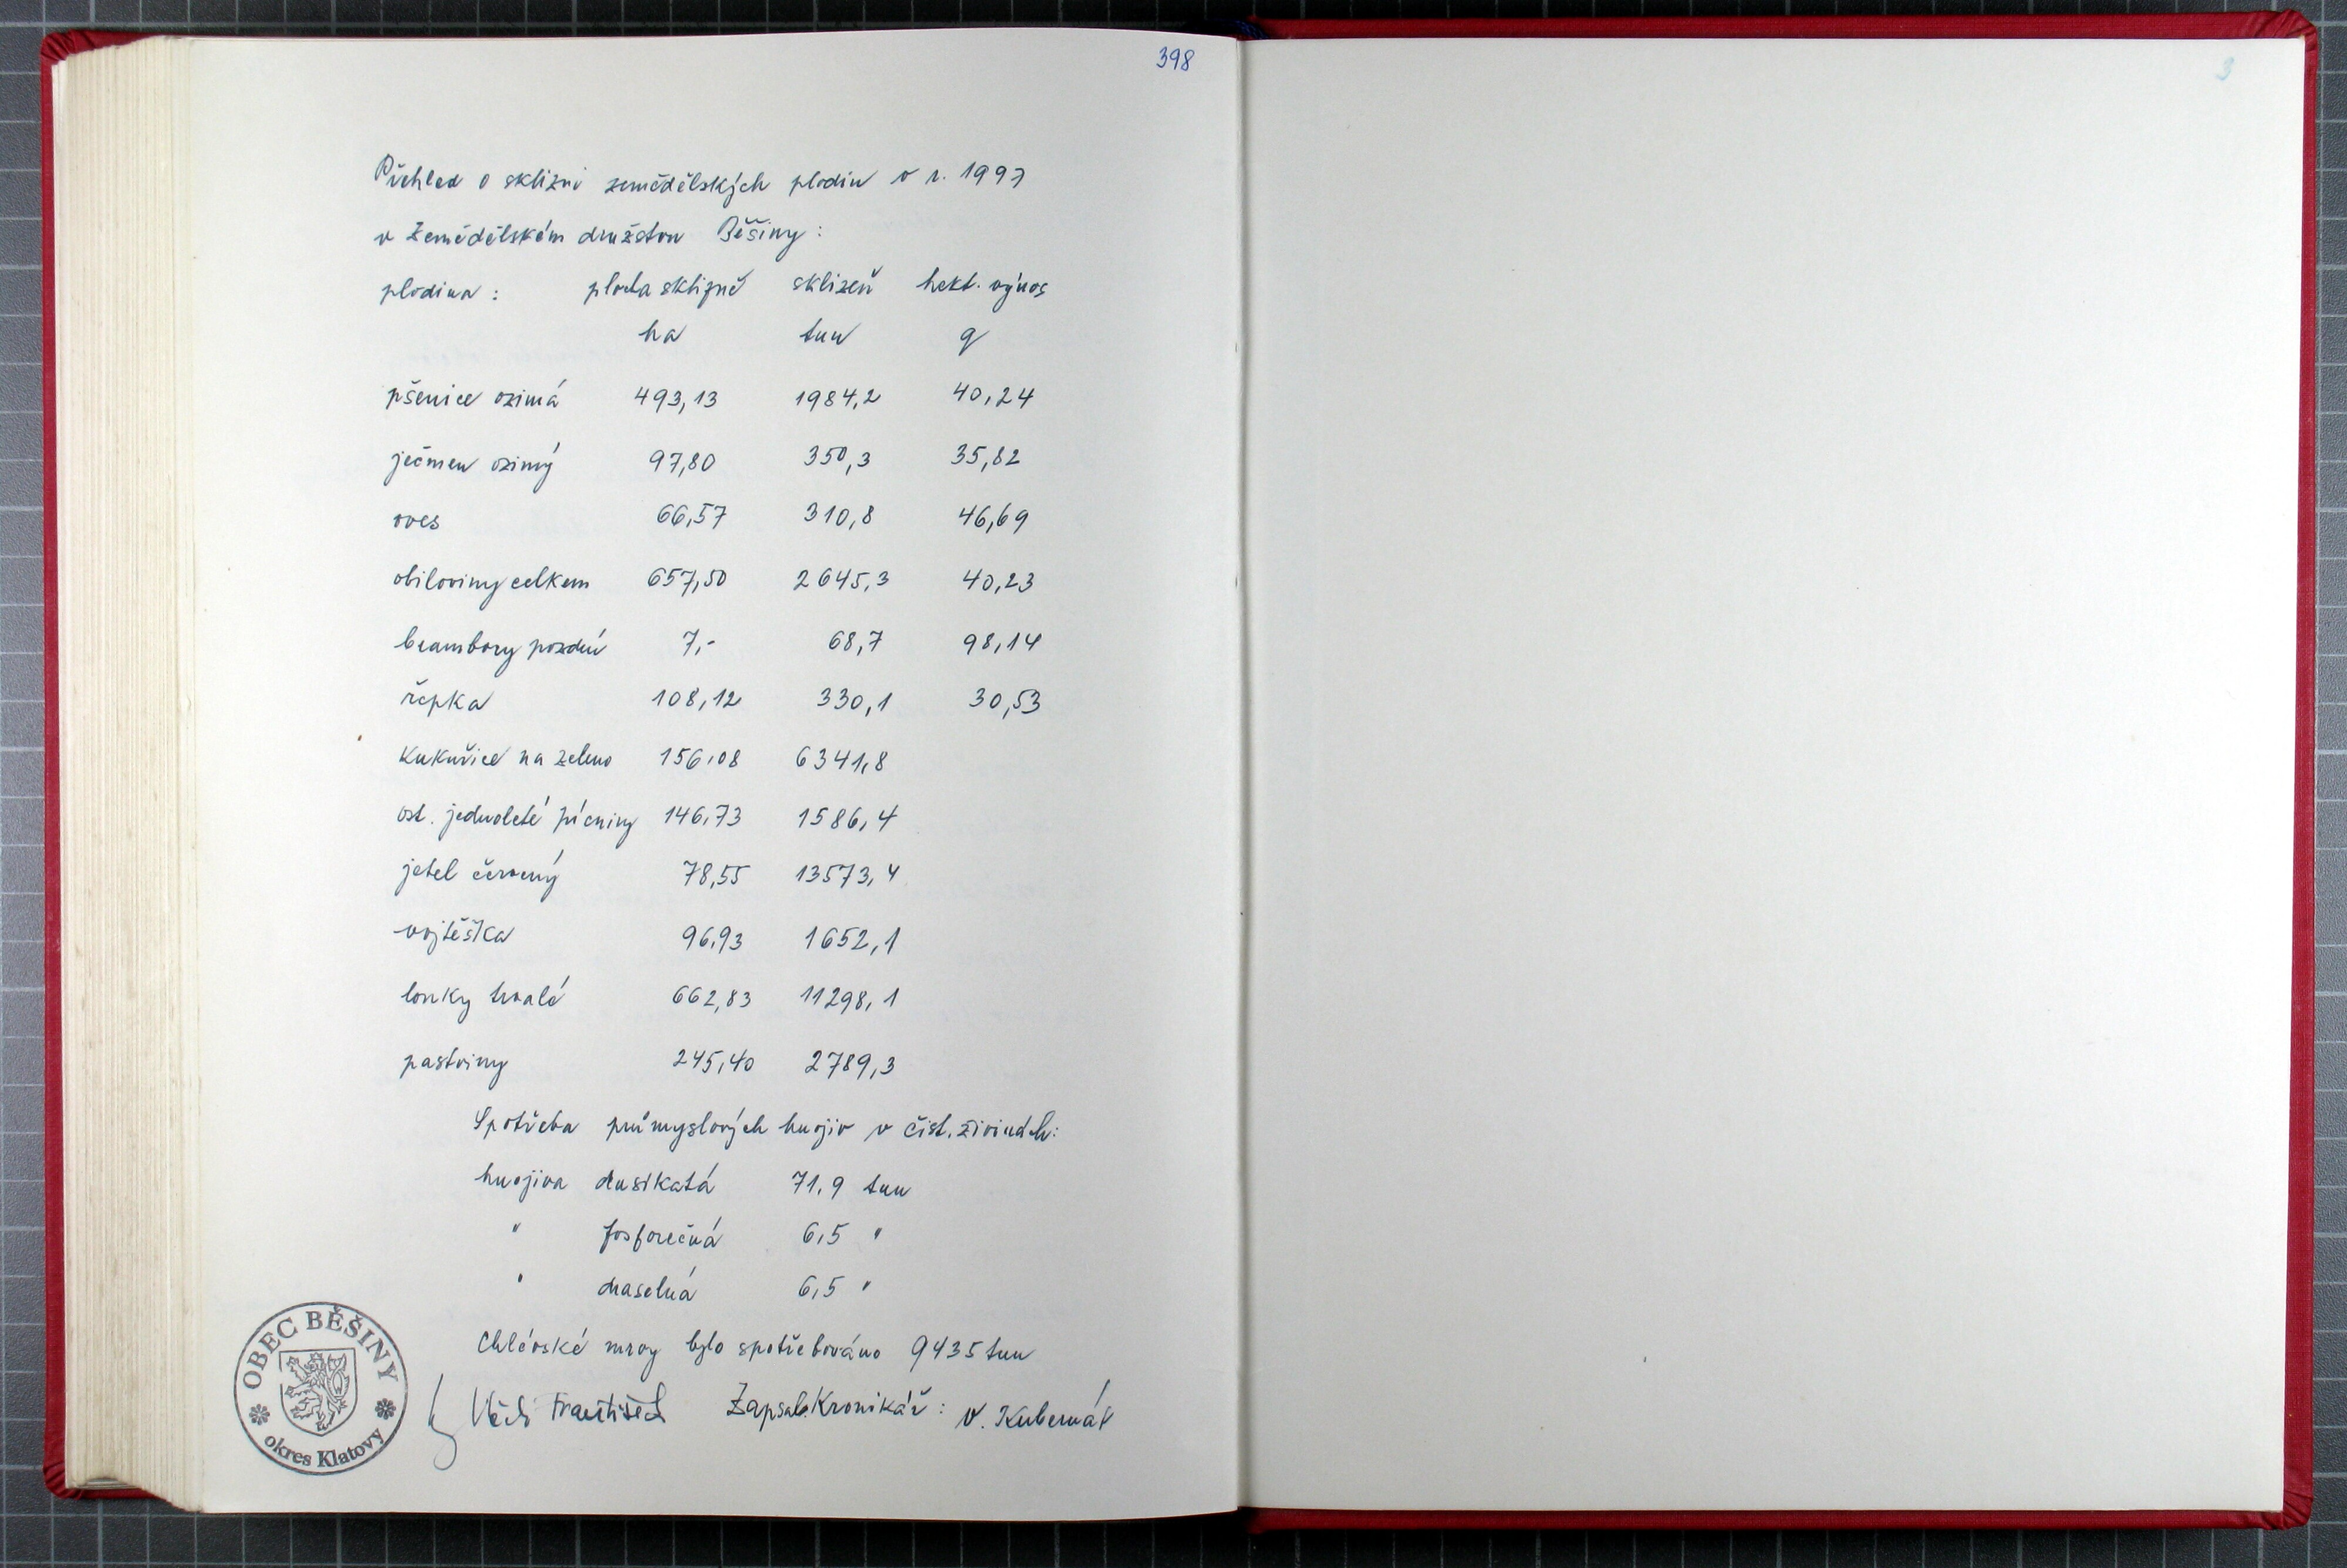 398
3
Přehled o sklizni zemědělských plodin v r. 1997
v Zemědělském družstvu Běšiny:
plodina: plocha sklizně sklizeň hekt. výnos
ha tun q
pšenice ozimá 493,13 1984,2 40,24
ječmen ozimý 97,80 350,3 35,82
oves 66,57 310,8 46,69
obiloviny celkem 657,50 2645,3 40,23
brambory pozdní 7,- 68,7 98,14
řepka 108,12 330,1 30,53
kukuřice na zeleno 156,08 6341,8
ost. jednoleté pícniny 146,73 1586,4
jetel červený 78,55 13573,4
vojtěška 96,93 1652,1
louky trvalé 662,83 11298,1
pastviny 245,40 2789,3
Spotřeba průmyslových hnojiv v čist. živinách:
hnojiva dusíkatá 71,9 tun
" fosforečná 6,5 "
" draselná 6,5 "
Chlévské mrvy bylo spotřebováno 9435 tun
František Zapsal: Kronikář: V. Kubernát
OBEC BĚŠINY
okres Klatovy